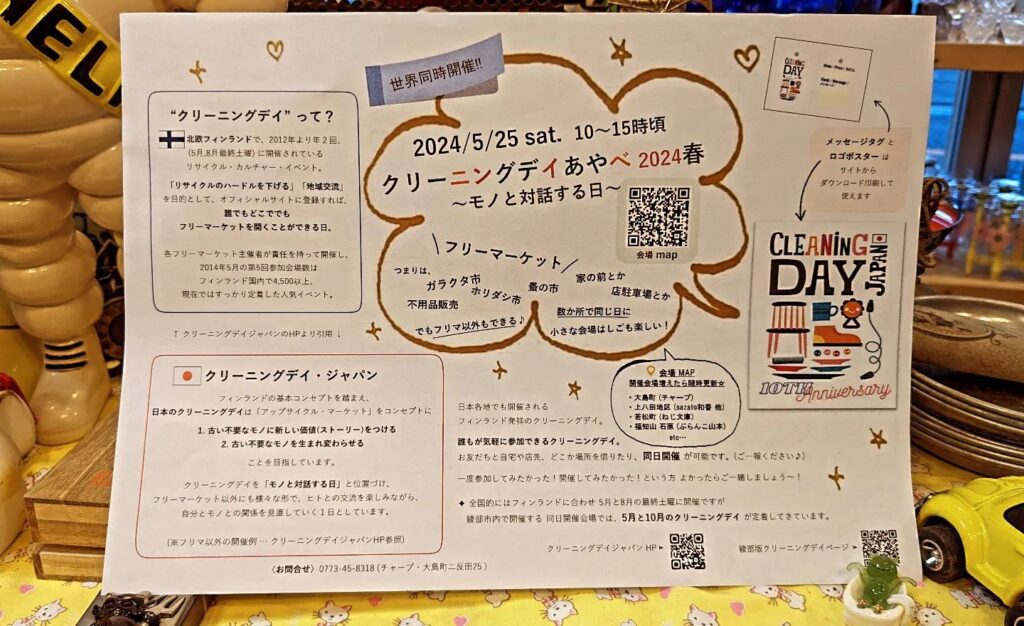 HEL
世界同時開催!!
2024/5/25 sat. 10～15時頃
クリーニングデイあやべ 2024春
～モノと対話する日～
会場 map
\ フリーマーケット /
つまりは、
ガラクタ市
ホリダシ市
蚤の市
家の前とか
店駐車場とか
不用品販売
でもフリマ以外もできる♪
数か所で同じ日に
小さな会場はしごも楽しい！
“クリーニングデイ” って？
北欧フィンランドで、2012年より年２回、
(5月,8月最終土曜) に開催されている
リサイクル・カルチャー・イベント。
「リサイクルのハードルを下げる」「地域交流」
を目的として、オフィシャルサイトに登録すれば、
誰でもどこででも
フリーマーケットを開くことができる日。
各フリーマーケット主催者が責任を持って開催し、
2014年5月の第5回参加会場数は
フィンランド国内で4,500以上、
現在ではすっかり定着した人気イベント。
↑ クリーニングデイジャパンのHPより引用 ↓
クリーニングデイ・ジャパン
フィンランドの基本コンセプトを踏まえ、
日本のクリーニングデイは「アップサイクル・マーケット」をコンセプトに
1. 古い不要なモノに新しい価値(ストーリー)をつける
2. 古い不要なモノを生まれ変わらせる
ことを目指しています。
クリーニングデイを「モノと対話する日」と位置づけ、
フリーマーケット以外にも様々な形で、ヒトとの交流を楽しみながら、
自分とモノとの関係を見直していく１日としています。
(※フリマ以外の開催例 … クリーニングデイジャパンHP参照)
〈お問合せ〉0773-45-8318 (チャープ・大島町二反田25 )
CLEANING
DAY
メッセージタグ と
ロゴポスター は
サイトから
ダウンロード印刷して
使えます
CLEANING
DAY
JAPAN
10TH
Anniversary
会場 MAP
開催会場増えたら随時更新☆
・大島町 (チャープ)
・上八田地区 (sazato和香 他)
・若松町 (ねじ文庫)
・福知山 石原 (ぶらんこ山本)
etc…
日本各地でも開催される
フィンランド発祥のクリーニングデイ。
誰もが気軽に参加できるクリーニングデイ。
お友だちと自宅や店先、どこか場所を借りたり、同日開催 が可能です。(ご一報ください♪)
一度参加してみたかった！開催してみたかった！という方 よかったらご一緒しましょう～！
✦ 全国的にはフィンランドに合わせ 5月と8月の最終土曜に開催ですが
綾部市内で開催する 同日開催会場では、5月と10月のクリーニングデイ が定着してきています。
クリーニングデイジャパン HP ▸
綾部版クリーニングデイページ ▸